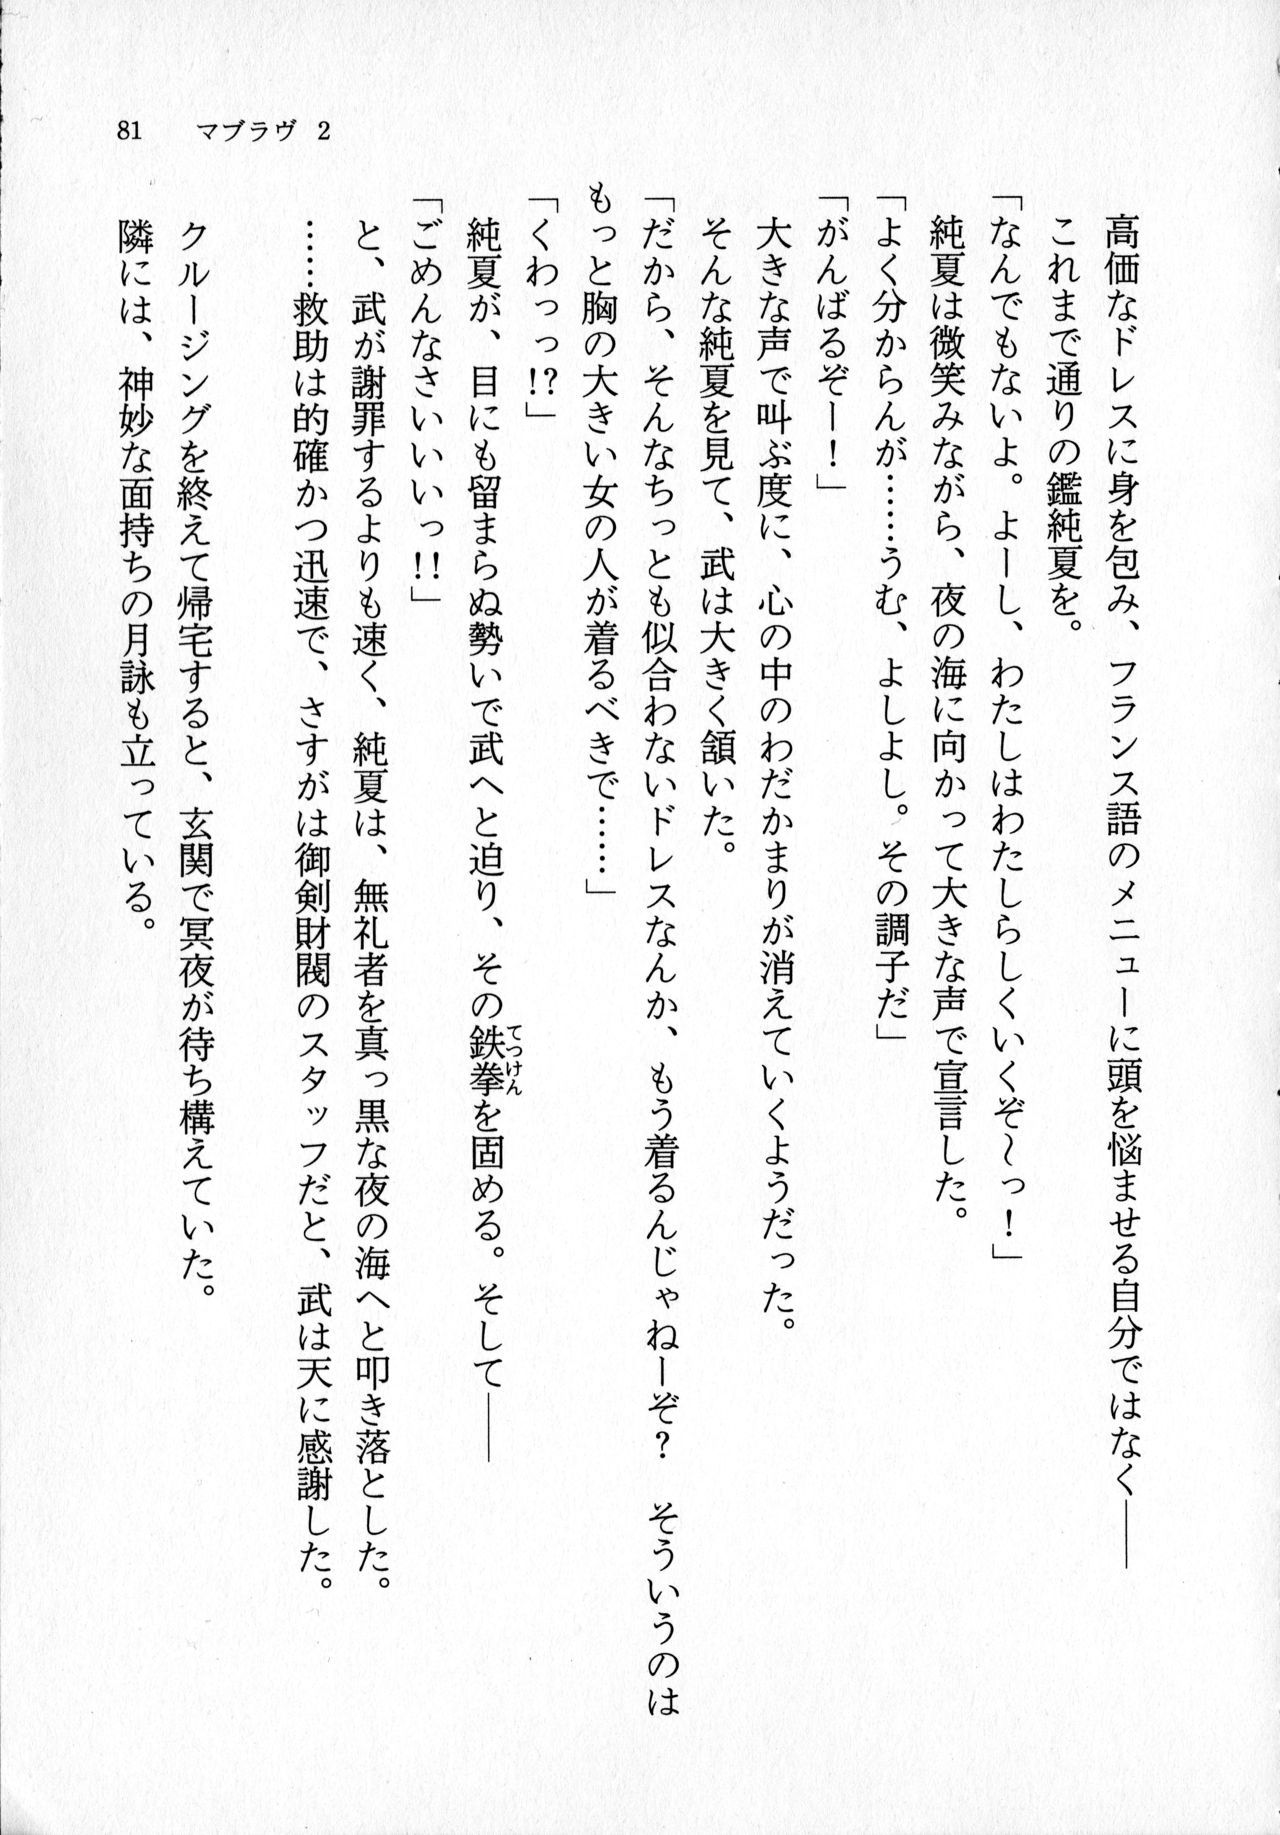 81　マブラヴ 2
高価なドレスに身を包み、フランス語のメニューに頭を悩ませる自分ではなく――
これまで通りの鑑純夏を。
「なんでもないよ。よーし、わたしはわたしらしくいくぞ～っ！」
純夏は微笑みながら、夜の海に向かって大きな声で宣言した。
「よく分からんが……うむ、よしよし。その調子だ」
「がんばるぞー！」
大きな声で叫ぶ度に、心の中のわだかまりが消えていくようだった。
そんな純夏を見て、武は大きく頷いた。
「だから、そんなちっとも似合わないドレスなんか、もう着るんじゃねーぞ？　そういうのは
もっと胸の大きい女の人が着るべきで……」
「くわっっ!?」
純夏が、目にも留まらぬ勢いで武へと迫り、その鉄拳てつけんを固める。そして――
「ごめんなさいいいっ!!」
と、武が謝罪するよりも速く、純夏は、無礼者を真っ黒な夜の海へと叩き落とした。
……救助は的確かつ迅速で、さすがは御剣財閥のスタッフだと、武は天に感謝した。
クルージングを終えて帰宅すると、玄関で冥夜が待ち構えていた。
隣には、神妙な面持ちの月詠も立っている。